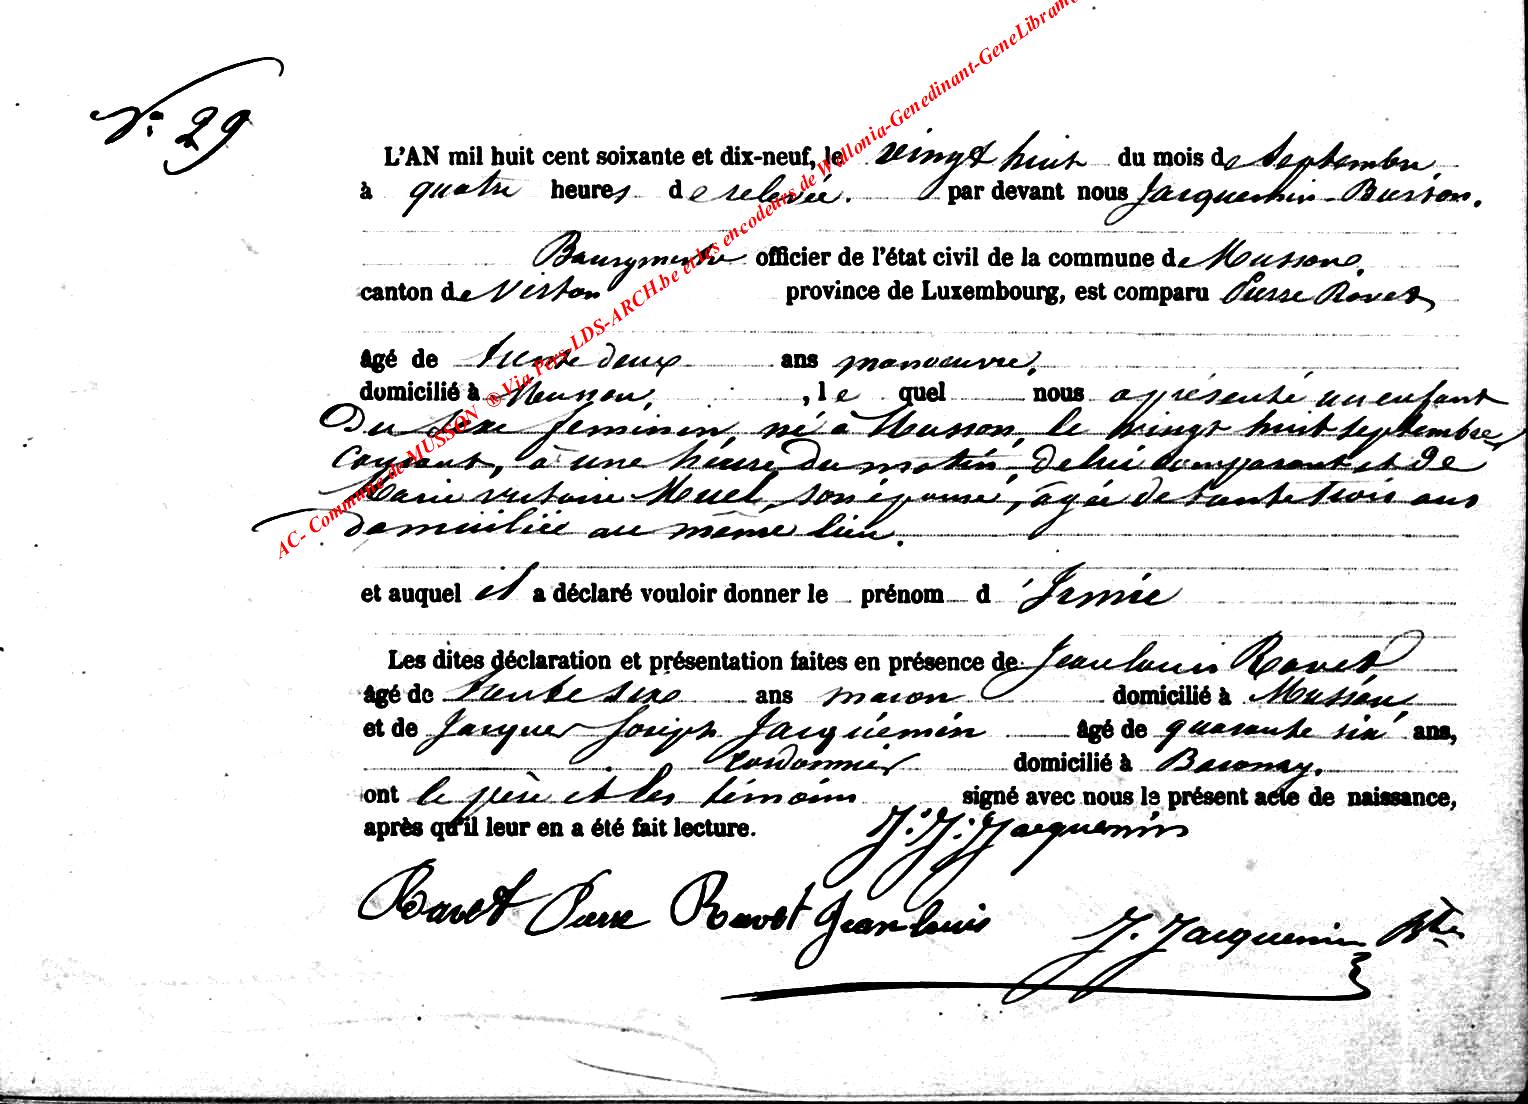 N: 29
L'AN mil huit cent soixante et dix-neuf, le vingt huit du mois de Septembre
à quatre heures de relevée. par devant nous Jacquemin-Burton.
Bourgmestre officier de l'état civil de la commune de Musson,
canton de Virton province de Luxembourg, est comparu Pierre Ravet
âgé de trente deux ans manoeuvre,
domicilié à Musson, , le quel nous a présenté un enfant
du sexe feminin, né à Musson, le vingt huit septembre
courant, à une heure du matin, de lui comparant et de
Marie victoire Muel, son épouse, âgée de trente trois ans
domiciliée au même lieu.
et auquel il a déclaré vouloir donner le prénom d' Irmie
Les dites déclaration et présentation faites en présence de Jean louis Ravet
âgé de trente six ans macon domicilié à Musson,
et de Jacques Joseph Jacquemin âgé de quarante six ans,
cordonnier domicilié à Baranzy.
ont le père et les témoins signé avec nous le présent acte de naissance,
après qu'il leur en a été fait lecture. J. J. Jacquemin
Ravet Pierre Ravet Jean louis J. Jacquemin Btn
AC- Commune de MUSSON ® Via Pers-LDS-ARCH.be et les encodeurs de Wallonia-Genedinant-GeneLibramo